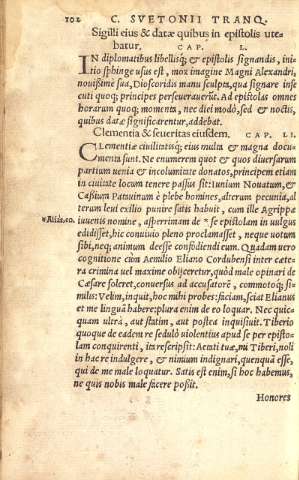 102 C. SVETONII TRANQ.
Sigilli eius & datæ quibus in epistolis ute-
batur. CAP. L.
IN diplomatibus libellisq; & epistolis signandis, ini-
tio sphinge usus est, mox imagine Magni Alexandri,
nouißime sua, Dioscoridis manu sculpta, qua signare inse
cuti quoq; principes perseuerauerũt. Ad epistolas omnes
horarum quoq; momenta, nec diei modò, sed & noctis,
quibus datæ significarentur, addebat.
Clementia & seueritas eiusdem. CAP. LI.
CLementiæ ciuilitatisq; eius multa & magna docu-
menta sunt. Ne enumerem quot & quos diuersarum
partium uenia & incolumitate donatos, principem etiam
in ciuitate locum tenere passus sit: Iunium Nouatum, &
Caßium Patauinum è plebe homines, alterum pecunia, al
terum leui exilio punire satis habuit, cum ille Agrippæ
iuuenis nomine, asperrimam de se epistolam in uulgus
edidisset, hic conuiuio pleno proclamasset, neque uotum
sibi, neq; animum deesse confodiendi eum. Quadam uero
cognitione cùm Aemilio Eliano Cordubensi inter cæte-
ra crimina uel maxime obijceretur, quòd male opinari de
Cæsare soleret, conuersus ad accusatorẽ, commotoq; si-
milis: Velim, inquit, hoc mihi probes: faciam, sciat Elianus
et me linguã habere: plura enim de eo loquar. Nec quic-
quam ultrà, aut statim, aut postea inquisiuit. Tiberio
quoque de eadem re sedulò uiolentius apud se per epistó-
lam conquirenti, ita rescripsit: Aetati tuæ, mi Tiberi, noli
in hac re indulgere, & nimium indignari, quenquã esse,
qui de me male loquatur. Satis est enim, si hoc habemus,
ne quis nobis male facere poßit.
Honores